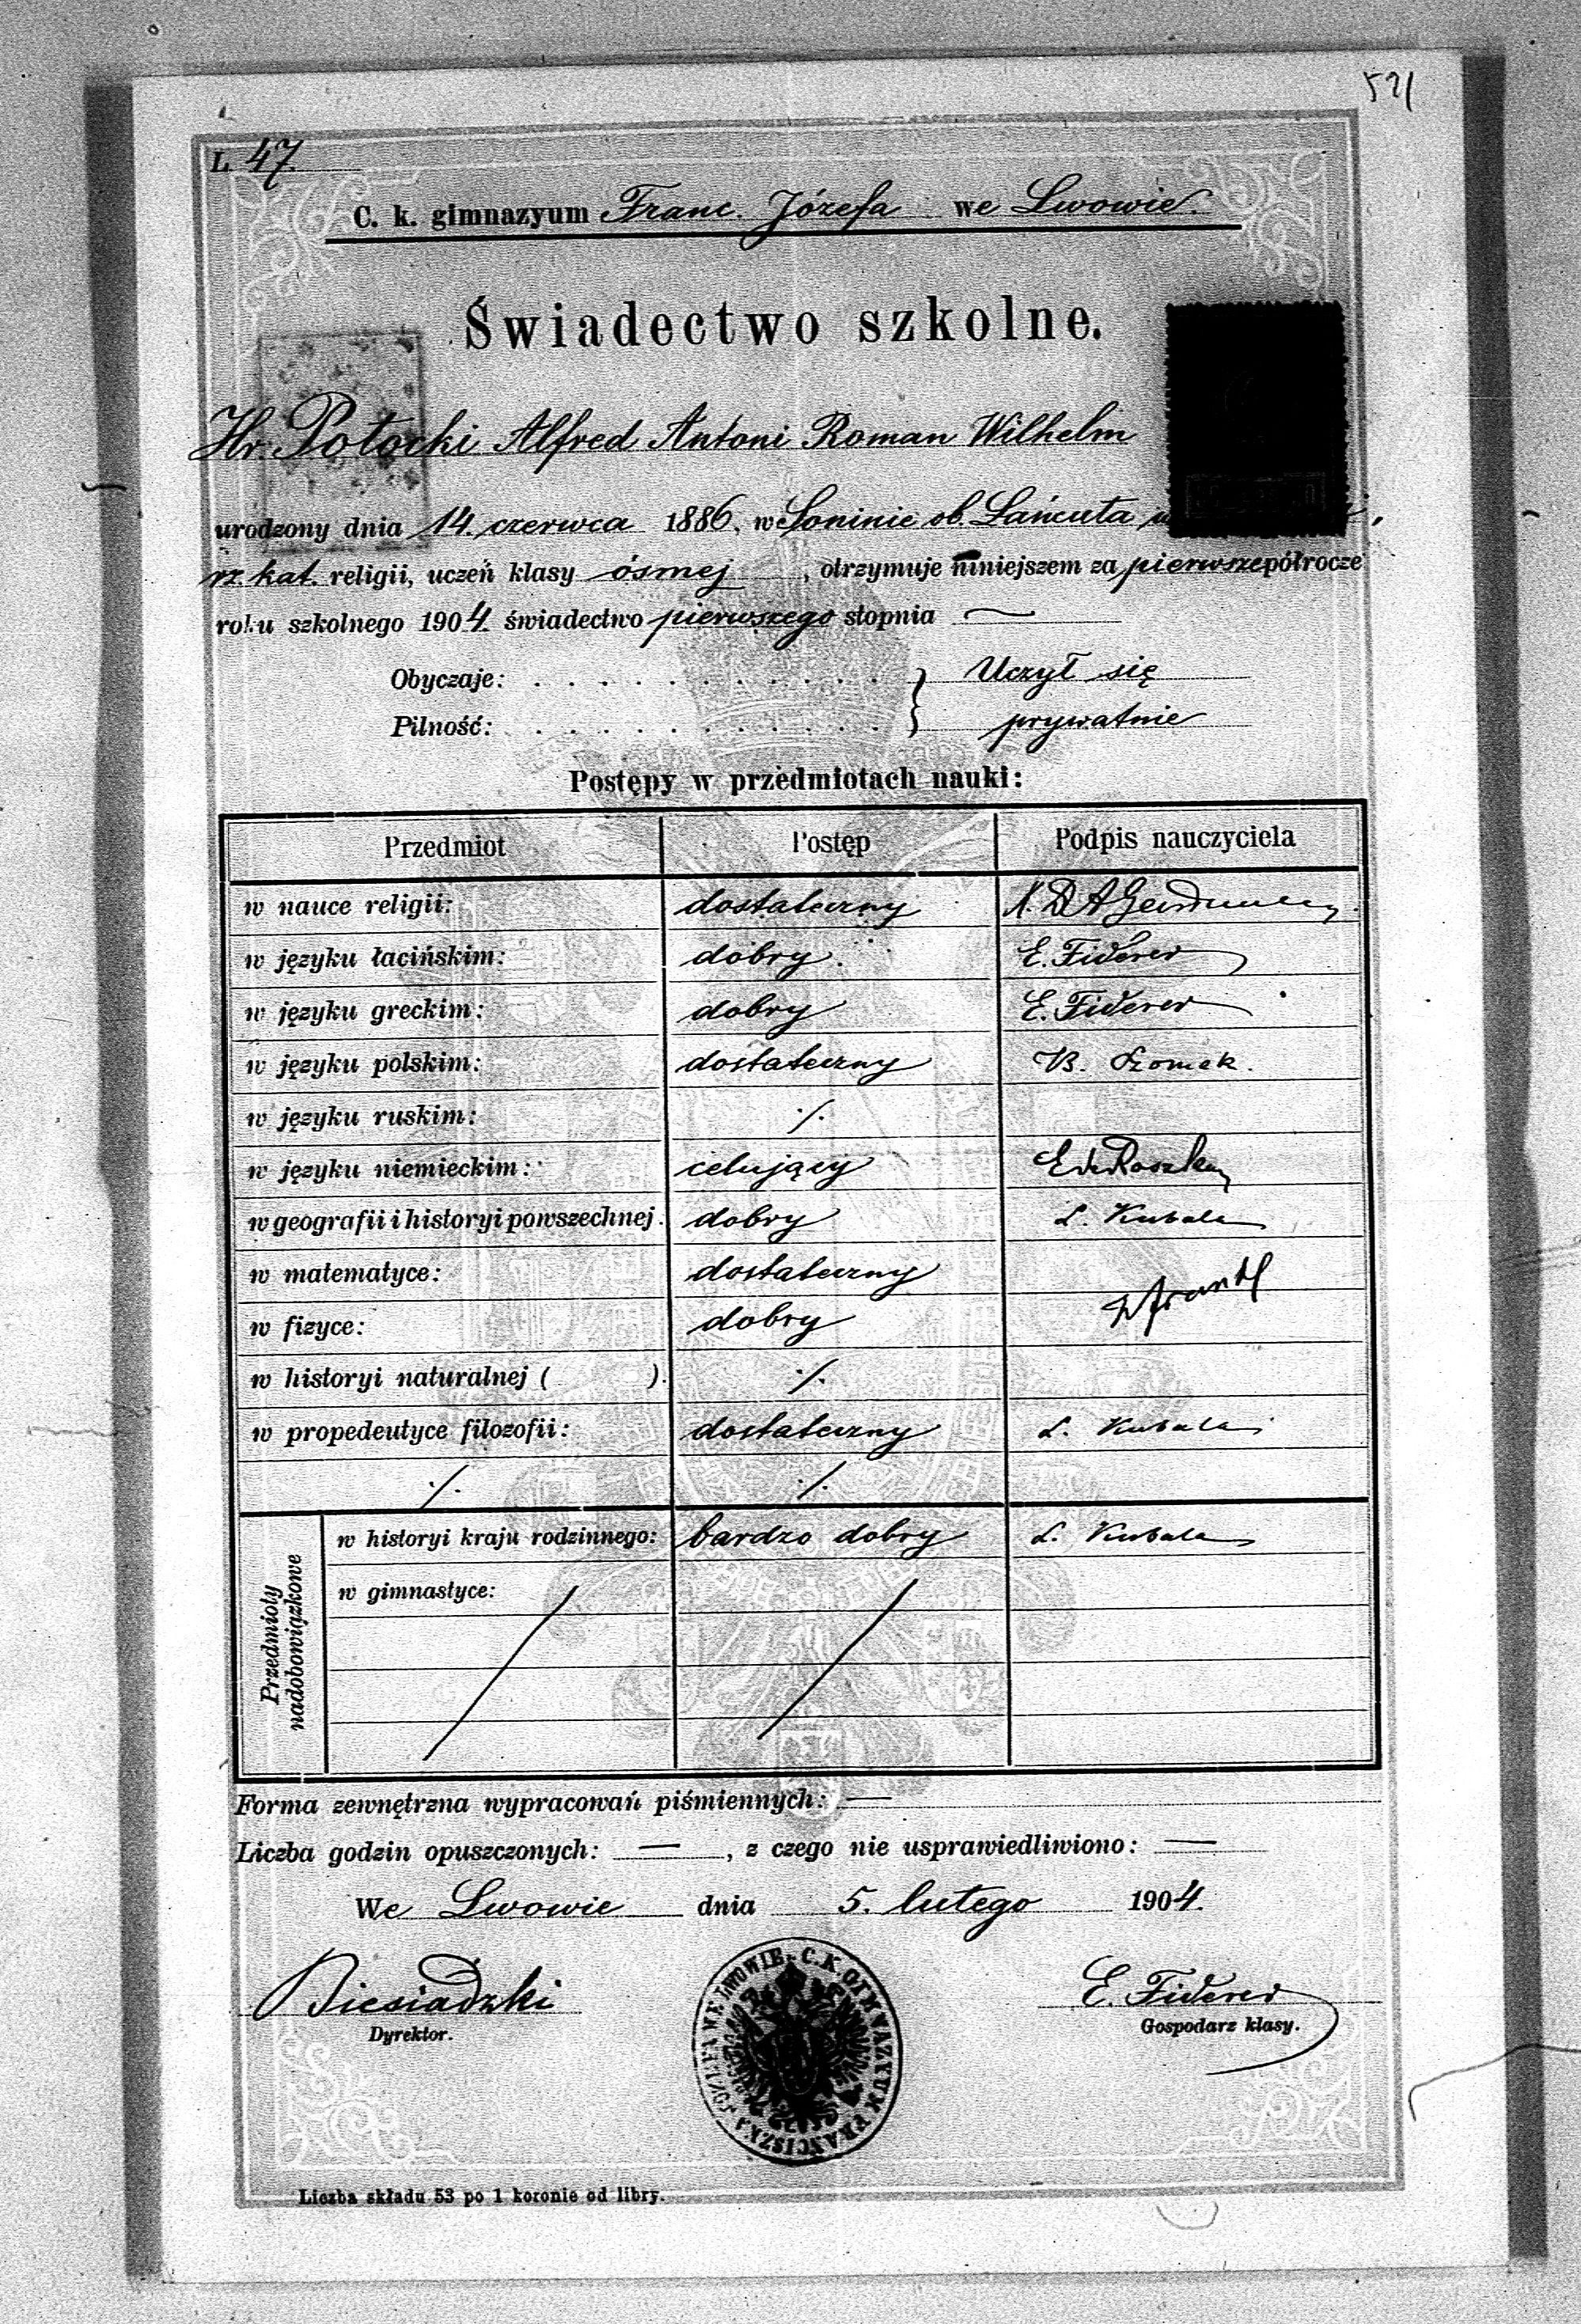 521
L. 47.
C. k. gimnazyum Franc. Józefa we Lwowie.
Świadectwo szkolne.
Hr. Potocki Alfred Antoni Roman Wilhelm
urodzony dnia 14. czerwca 1886, we Soninie ob. Łańcuta
rz. kat. religii, uczeń klasy ósmej, otrzymuje niniejszem za pierwsze półrocze
roku szkolnego 1904. świadectwo pierwszego stopnia —
Obyczaje: . . . . . . . . . . . } Uczył się
Pilność: . . . . . . . . . . . } prywatnie
Postępy w przedmiotach nauki:
Przedmiot Postęp Podpis nauczyciela
w nauce religii: dostateczny
w języku łacińskim: dobry. E. Fiderer
w języku greckim: dobry E. Fiderer
w języku polskim: dostateczny
w języku ruskim: ./.
w języku niemieckim: celujący
w geografii i historyi powszechnej. dobry L. Kubala
w matematyce: dostateczny
w fizyce: dobry
w historyi naturalnej ( ). ./.
w propedeutyce filozofii: dostateczny L. Kubala
./. ./.
Przedmioty nadobowiązkowe
w historyi kraju rodzinnego: bardzo dobry L. Kubala
w gimnastyce:
Forma zewnętrzna wypracowań piśmiennych: —
Liczba godzin opuszczonych: —, z czego nie usprawiedliwiono: —
We Lwowie dnia 5. lutego 1904.
Biesiadzki E. Fiderer
Dyrektor. Gospodarz klasy.
C. K. GIMNAZYUM FRANCISZKA JÓZEFA WE LWOWIE
Liczba składu 53 po 1 koronie od libry.